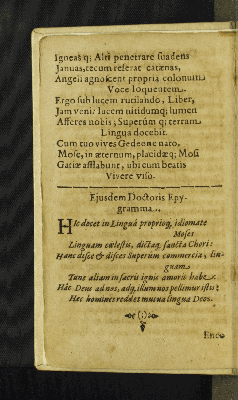 Igneasq; Alti penetrare suadens
Januas, tecum referat catenas,
Angeli agnoscent propria colonum
Voce loquentem.
Ergo sub lucem rutilando, Liber,
Jam veni: lucem nitidumq; lumen
Afferes nobis; Superûm q; terram
Lingua docebit.
Cum tuo vives Gedeone nato,
Mose, in æternum, placidæq; Mosi
Gatiæ afflabunt, ubi cum beatis
Vivere viso.
Ejusdem Doctoris Epy-
gramma.
HIc docet in Linguâ propriog, idiomate
Moses
Linguam cælestis, dictaq, sancta Chori:
Hanc disce & disces Superûm commercia, lin-
guam
Tunc aliam in sacris ignis amoris habe.
Hâc Deus ad nos, adq, illum nos pellimur istâ:
Hæc homines reddet mutua lingua Deos.
(:)
Enco